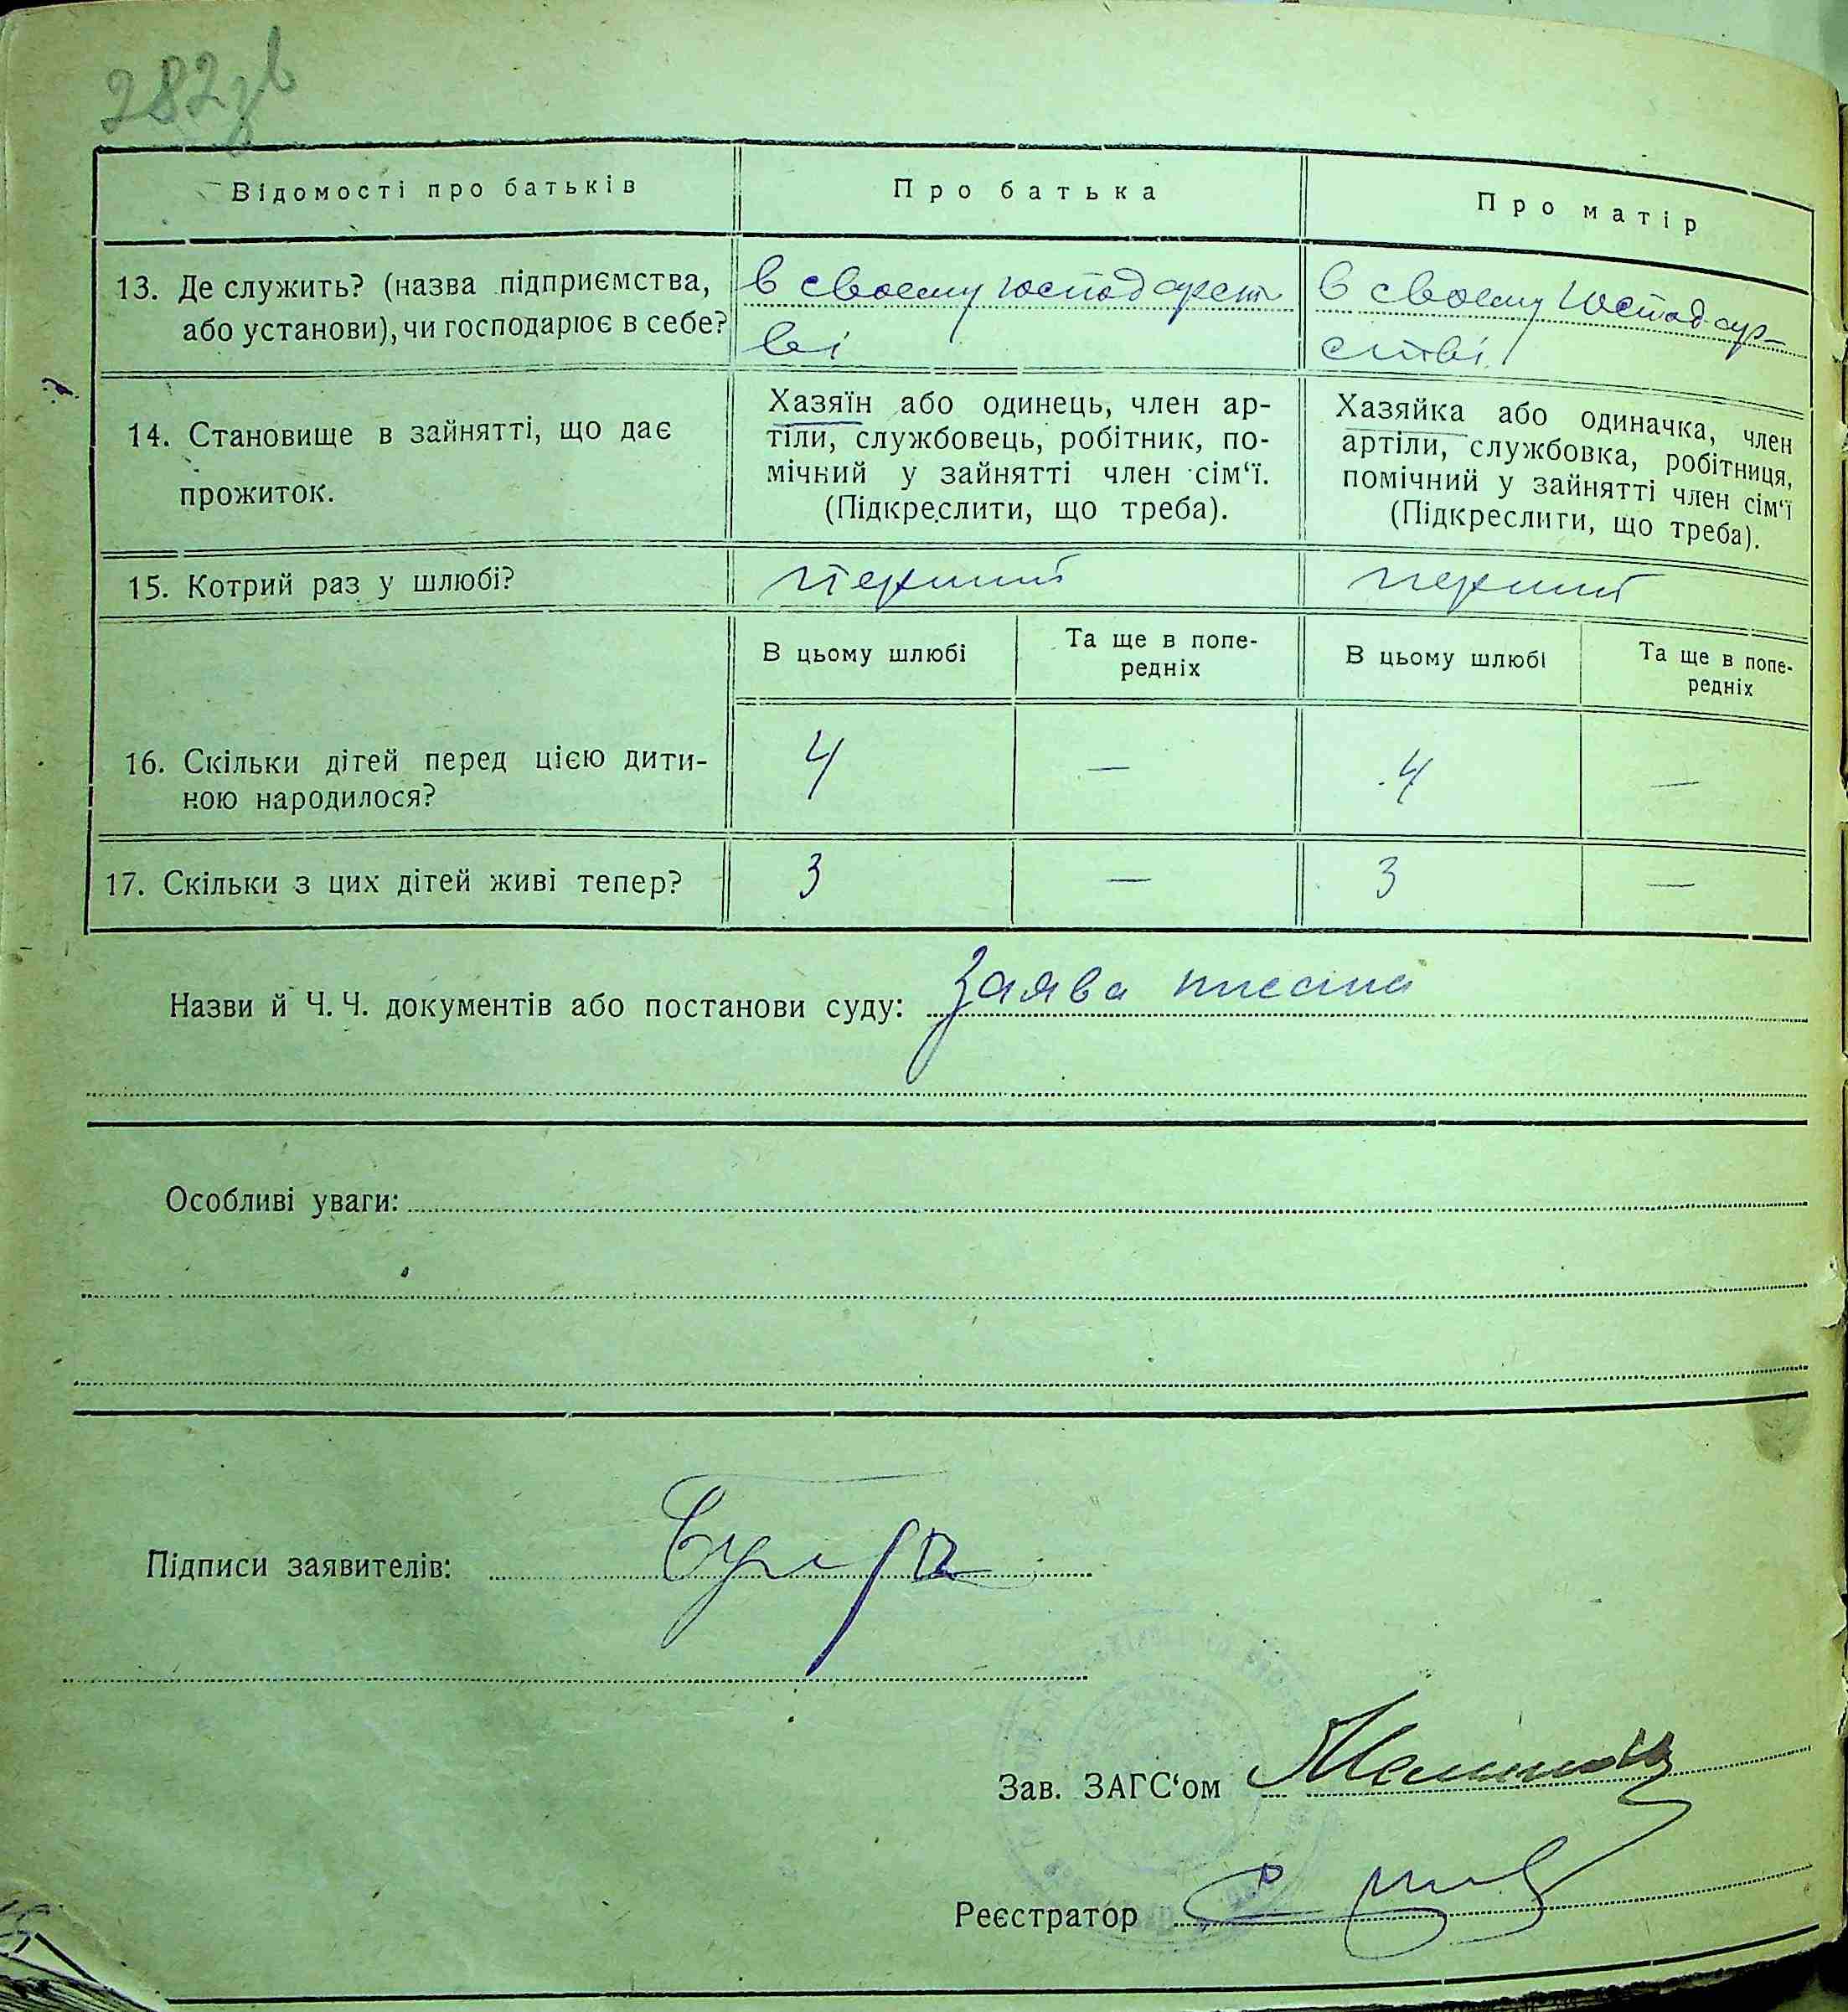 282зв
Відомості про батьків
Про батька
Про матір
13. Де служить? (назва підприємства,
або установи), чи господарює в себе?
в своему господарст
ві
в своему господар-
стві
14. Становище в зайнятті, що дає
прожиток.
Хазяїн або одинець, член ар-
тіли, службовець, робітник, по-
мічний у зайнятті член сім‘ї.
(Підкреслити, що треба).
Хазяйка або одиначка, член
артіли, службовка, робітниця,
помічний у зайнятті член сім‘ї
(Підкреслити, що треба).
15. Котрий раз у шлюбі?
перший
перший
В цьому шлюбі
Та ще в попе-
редніх
В цьому шлюбі
Та ще в попе-
редніх
16. Скільки дітей перед цією дити-
ною народилося?
4
—
4
—
17. Скільки з цих дітей живі тепер?
3
—
3
—
Назви й Ч. Ч. документів або постанови суду: Заява писана
Особливі уваги:
Підписи заявителів:
Зав. ЗАГС‘ом
Реєстратор